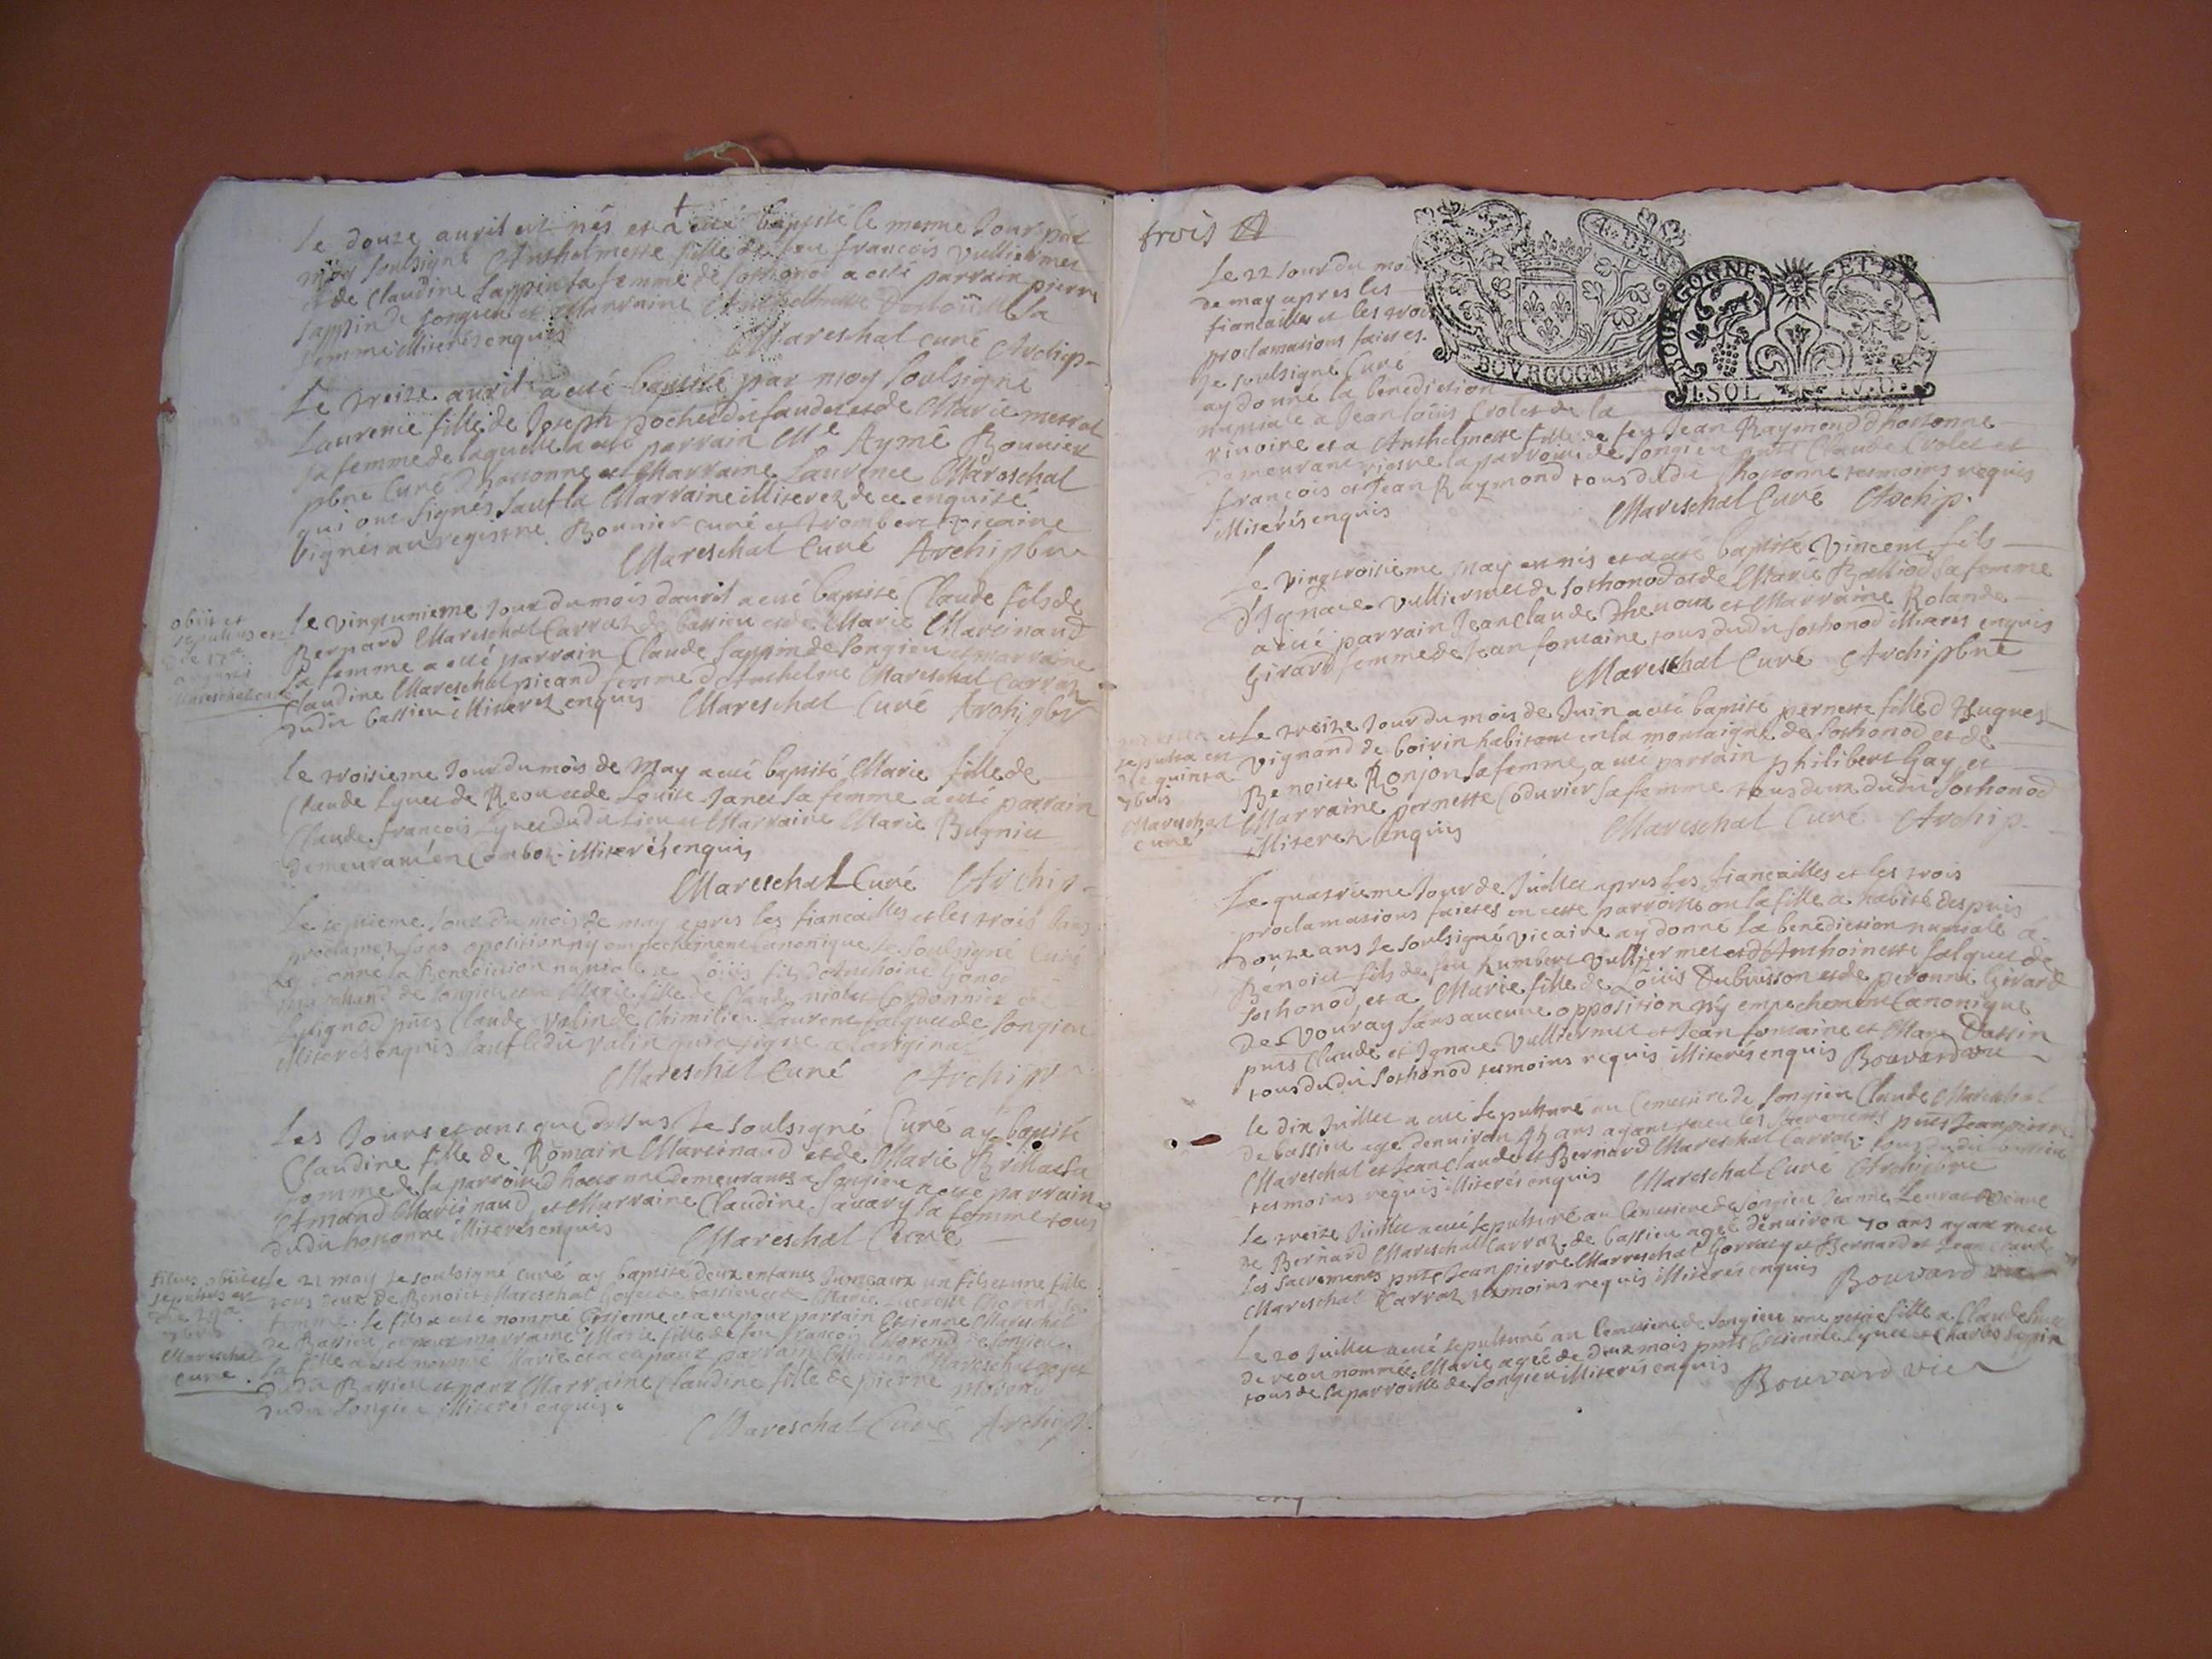 Le douze auril est nés et a esté baptisé le meme Jour par
moy soulsigné Anthelmette fille de feu francois vulliermet
et de Claudine sappin sa femme de sothonod a esté parrain pierre
sappin de songieu et Marraine
femme illiterés enquis Mareschal curé Archip
Le treize auril a esté baptisé par moy soulsigné
Laurence fille de Joseph pochet dit faudet et de Marie metral
sa femme de laquelle a esté parrain Mre Aymé Bounier
pbre Curé d'hottonne et Marraine Laurence Mareschal
qui ont signés sauf la Marraine illiterez de ce enquise
signés au registre Bounier curé et trombert vicaire
Mareschal Curé Archipbre
obiit et
sepultus est
Mareschal curé
Le vingtunieme Jour du mois dauril a esté baptisé Claude fils de
Bernard Mareschal Carraz de bassieu et de Marie Martinand
sa femme a esté parrain Claude sappin de songieu et marraine
Claudine Mareschal picand femme d'Anthelme Mareschal Carraz
dudit bassieu illiterez enquis Mareschal Curé Archipbr
Le troisieme Jour du mois de May a esté baptisé Marie fille de
Claude Lyuet de Reou et de Louise Janet sa femme a esté parrain
Claude francois Lyuet dudit Lieu et Marraine Marie Bugniet
demeurant en Comboz illiterés enquis
Mareschal Curé Archip
Le septieme Jour du mois de may apres les fiancailles et les trois bans
proclamez sans oposition ny empechement Canonique Je soulsigné Curé
ay donné la Benediction nuptiale a Loüis fils d'Anthoine Gonod
marchand de songieu et a Marie fille de Claude niolet Cordonnier de
Luignod pnts Claude valin de Chimilieu Laurent falquet de songieu
illiterés enquis sauf ledit valin qui a signé a loriginal
Mareschal Curé Archip
Les Jours et ans que dessus Je soulsigné Curé ay baptisé
Claudine fille de Romain Martinand et de Marie Brillat sa
femme de la parroisse d'hottonne demeurants a songieu a esté parrain
Amand Martinaud et Marraine Claudine sauary sa femme tous
dudit hottonne illiterés enquis Mareschal Curé
filius obiit et
sepultus est
die 29a
Mareschal
curé.
Le 21 may Je soulsigné curé ay baptisé deux enfants Jumeaux un fils et une fille
tous deux de Benoict Mareschal Goyet de bassieu et de Marie Lucresse Morend sa
femme. le fils a esté nommé Estienne et a eu pour parrain Estienne Mareschal
de Bassieu et pour marraine Marie fille de feu francois Morend de songieu
la fille a esté nommé Marie et a eu pour parrain Mareschal goyet
dudit Bassieu et pour Marraine Claudine fille de pierre Morend
dudit songieu illiterés enquis.
Mareschal Curé Archip.
trois
BOVRGOGNE
BOURGOGNE ET
1. SOL
Le 22 Jour du mois
de may apres les
fiancailles et les trois
proclamations faictes.
Je soulsigné Curé
ay donné la benediction
nuptiale a Jean loüis Crolet de la
rinoire et a Anthelmette fille de feu Jean Raymond d'hottonne
demeurant riere la parroisse de songieu pnts Claude Crolet et
francois et Jean Raymond tous dudit hottonne temoins requis
illiterés enquis Mareschal Curé Archip.
Le vingtroisieme May est nés et a esté baptisé Vincent fils
d'Ignace vulliermet de sothonod et de Marie Balliod sa femme
a esté parrain Jean Claude Thenoux et Marraine Rolande
Girard femme de Jean fontaine tous dudit sothonod illiterés enquis
Mareschal Curé Archipbre
sepulta est
die quinta
7bris
Mareschal
curé
Le treize Jour du mois de Juin a esté baptisé pernette fille d'Hugues
vignand de boirin habitant en la montaigne de sothonod et de
Benoicte Ronjon sa femme, a esté parrain philibert Gay et
Marraine pernette Codurier sa femme tous deux dudit sothonod
illiterez enquis Mareschal Curé Archip.
Le quatrieme Jour de Juillet apres les fiancailles et les trois
proclamations faictes en cette parroisse ou la fille a habité despuis
douze ans Je soulsigné vicaire ay donné la benediction nuptiale a
Benoict fils de feu humbert vulliermet et d'Anthoinette falquet de
sothonod et a Marie fille de Loüis Dubuisson et de peronne Girard
de Vouray sans aucune opposition ny empechement Canonique
pnts Claude et Ignace vulliermet et Jean fontaine et Marc Dattin
tous dudit sothonod temoins requis illiterés enquis Bouvard vic
Le dix Juillet a esté sepulturé au Cemetiere de songieu Claude Mareschal
de bassieu agé denuiron 45 ans ayant receu les sacrements pnts Jean pierre
Mareschal et Jean Claude et Bernard Mareschal Carraz tous dudit bassieu
temoins requis illiterés enquis Mareschal Curé Archipbre
Le treize Juillet a esté sepulturé au Cemetiere de songieu Jeanne Leurat veuue
de Bernard Mareschal Carraz de bassieu agée denuiron 70 ans ayant receu
les sacrements pnts Jean pierre Marreschal Gorraty et Bernard et Jean Claude
Mareschal Carraz temoins requis illiterés enquis Bouvard vic
Le 20 Juillet a esté sepulturé au Cemetiere de songieu une petite fille a Claude Lyuet
de reou nommée Marie agée de deux mois pnts Estienne Lyuet et Charles sappin
tous de la parroisse de songieu illiterés enquis Bouvard vic